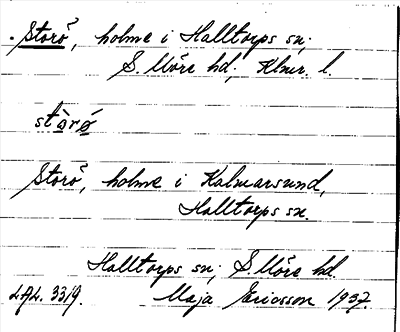 Storö, holme i Halltorps sn;
S. Möre hd; Klmr. l.
stòrǿ
Storö, holme i Kalmarsund,
Halltorps sn.
Halltorps sn; S. Möre hd.
LAL. 3319. Maja Ericsson 1937